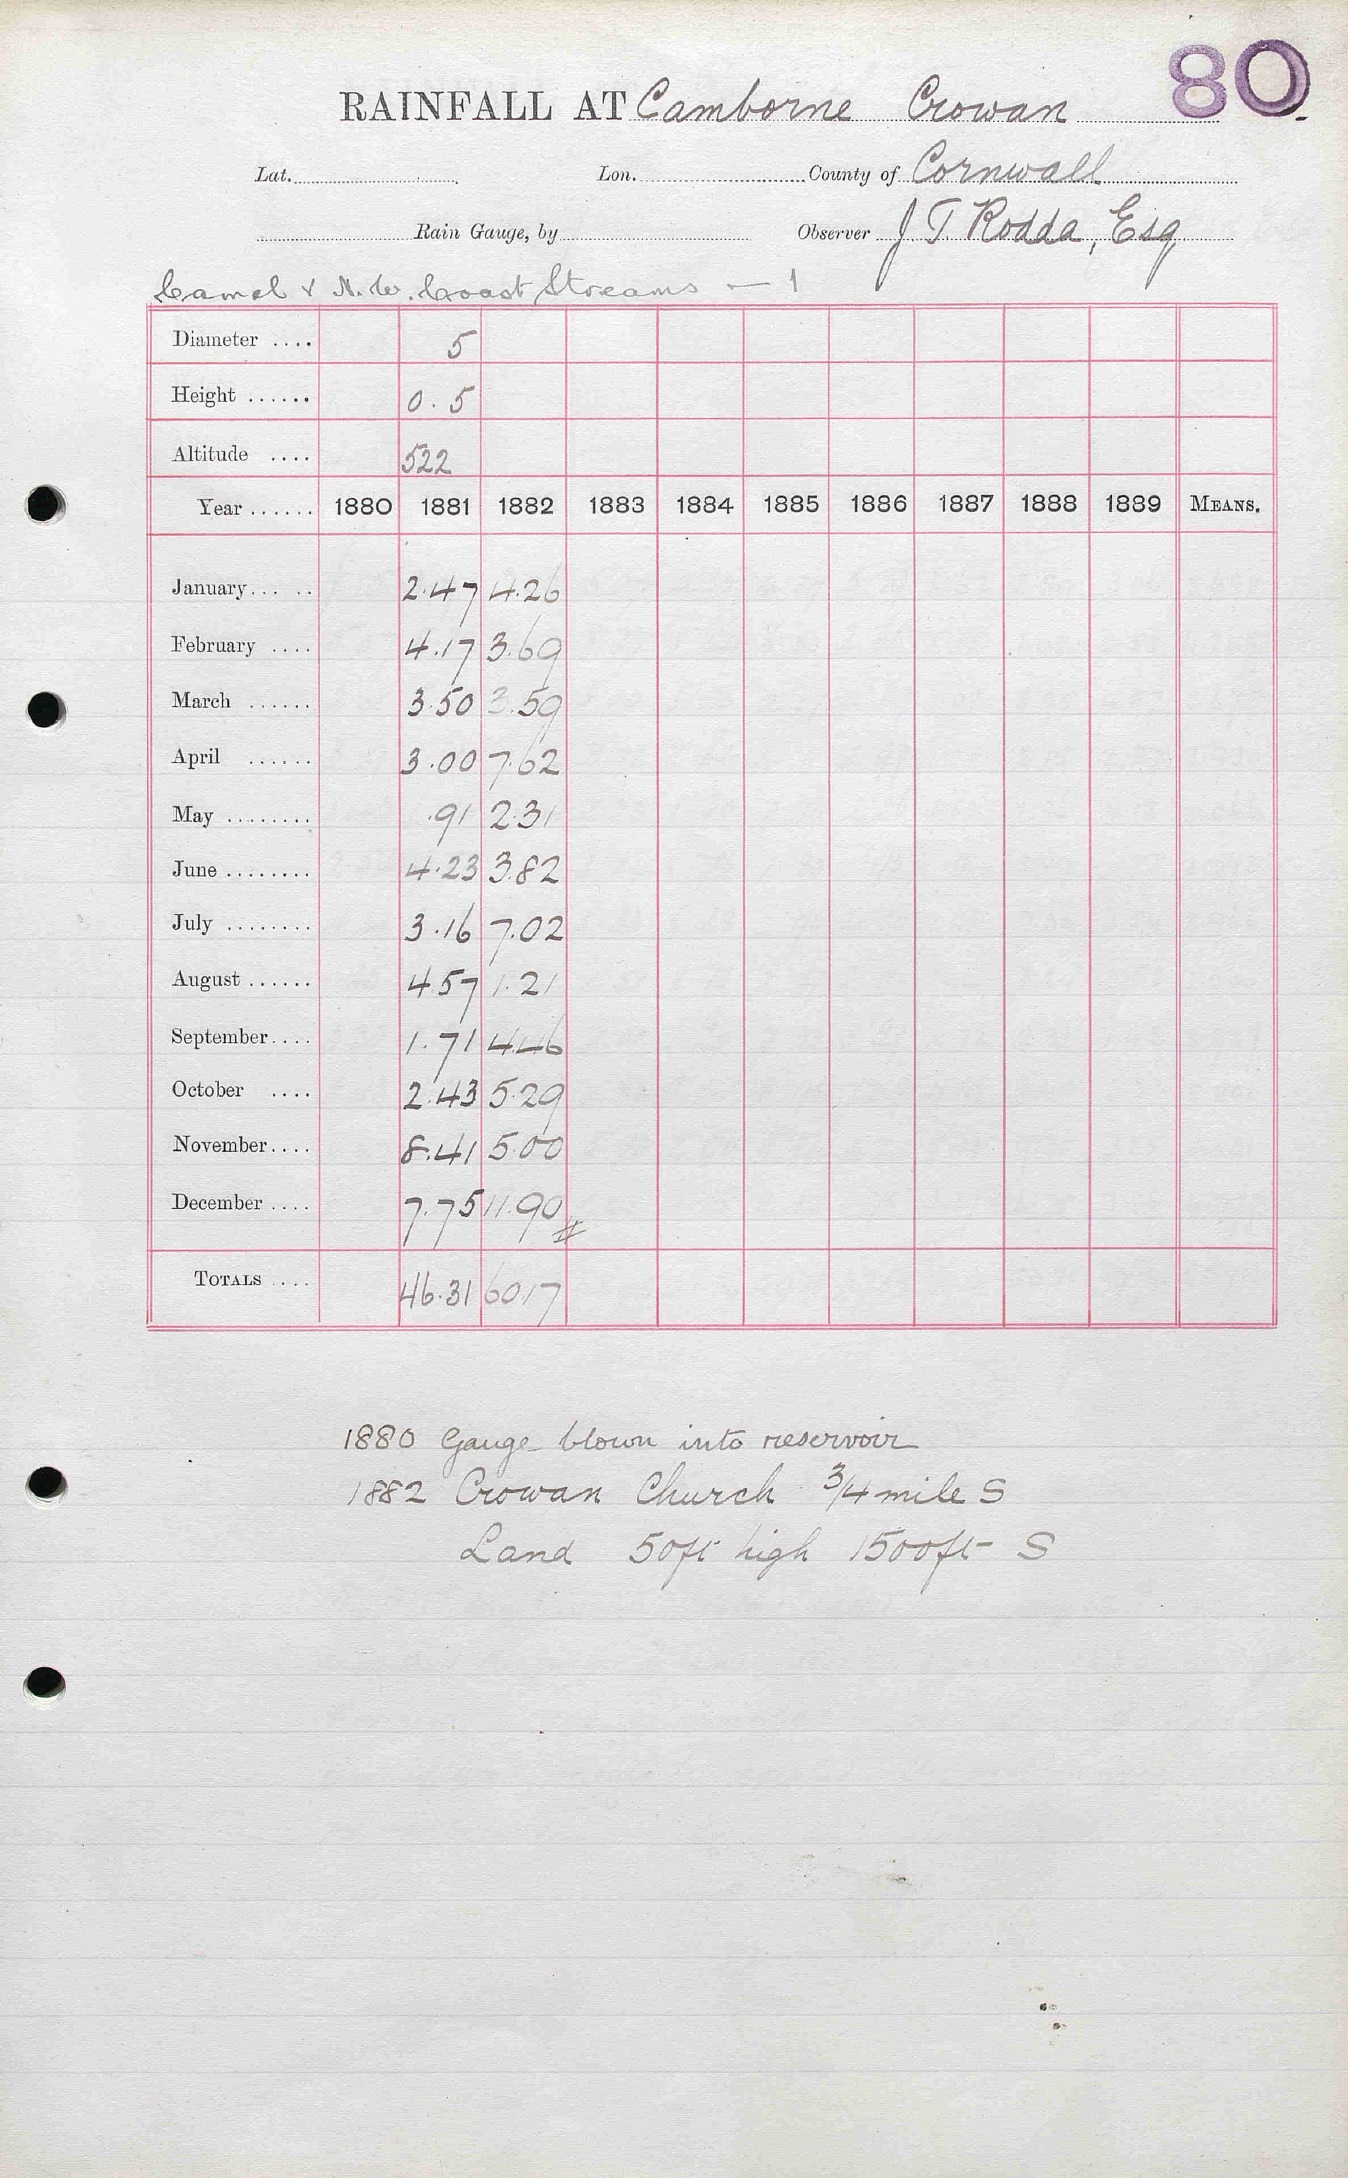 80.
RAINFALL AT Camborne Crowan
Lat. Lon. County of Cornwall
Rain Gauge, by Observer J. T. Rodda, Esq
Camel & N.W. Coast Streams — 1
Diameter .... 5
Height ...... 0.5
Altitude .... 522
Year ...... 1880 1881 1882 1883 1884 1885 1886 1887 1888 1889 MEANS.
January ... .. 2.47 4.26
February .... 4.17 3.69
March ...... 3.50 3.59
April ...... 3.00 7.62
May ........ .91 2.31
June ........ 4.23 3.82
July ........ 3.16 7.02
August ...... 4.57 1.21
September .... 1.71 4.46
October .... 2.43 5.29
November .... 8.41 5.00
December .... 7.75 11.90 #
TOTALS .... 46.31 60.17
1880 Gauge blown into reservoir
1882 Crowan Church 3/4 mile S
Land 50ft high 1500ft S